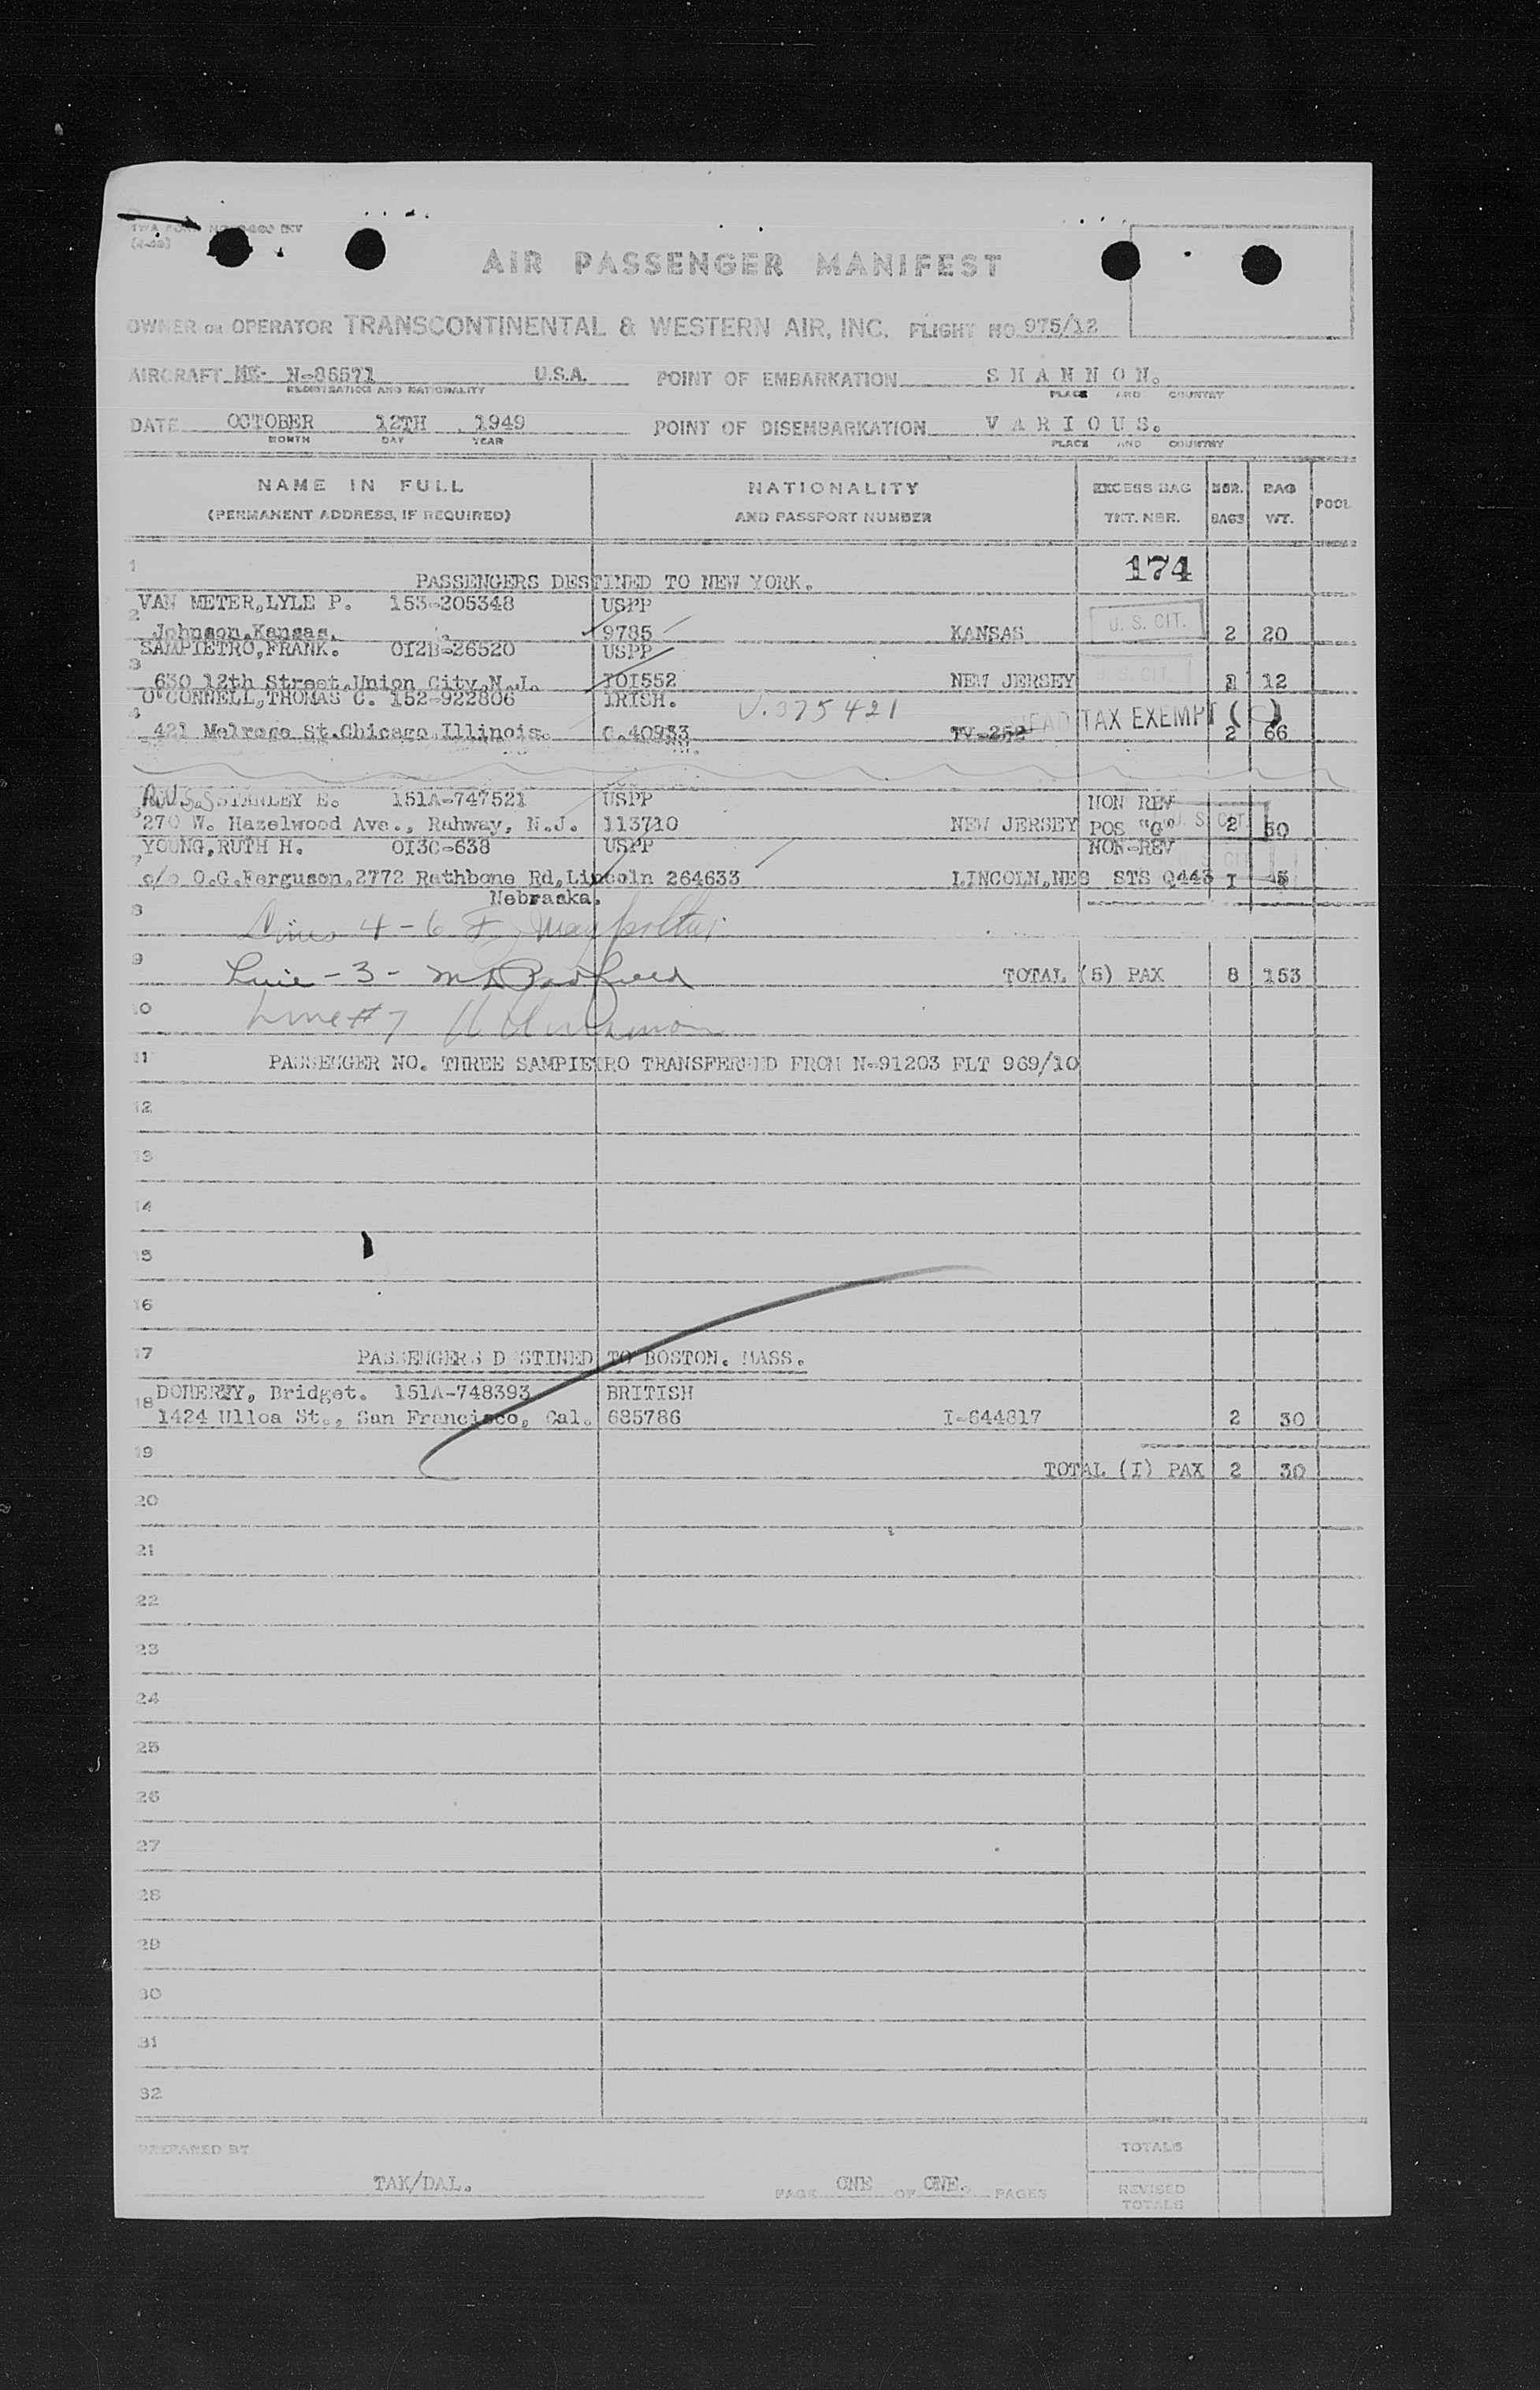 TWA FORM
AIR PASSENGER MANIFEST
OWNER OR OPERATOR TRANSCONTINENTAL & WESTERN AIR, INC. FLIGHT NO. 975/12
AIRCRAFT N-86571 U.S.A. POINT OF EMBARKATION S H A N N O N.
REGISTRATION AND NATIONALITY PLACE AND COUNTRY
DATE OCTOBER 12TH 1949 POINT OF DISEMBARKATION V A R I O U S.
MONTH DAY YEAR PLACE AND COUNTRY
NAME IN FULL NATIONALITY EXCESS BAG NBR. BAG POOL
(PERMANENT ADDRESS, IF REQUIRED) AND PASSPORT NUMBER TKT. NBR. BAGS WT.
1 174
PASSENGERS DESTINED TO NEW YORK.
VAN METER,LYLE P. 153-205348 USPP
2 Johnson,Kansas. 9785 KANSAS U. S. CIT. 2 20
SAMPIETRO,FRANK. OI2B-26520 USPP
3 630 12th Street,Union City,N.J. IOI552 NEW JERSEY U. S. CIT. 1 12
O'CONNELL,THOMAS C. 152-922806 IRISH. V.375421
4 421 Melrose St.Chicago,Illinois. C.40933 TV-252 HEAD TAX EXEMPT (C) 2 66
STANLEY E. 151A-747521 USPP NON REV
270 W. Hazelwood Ave., Rahway, N.J. 113710 NEW JERSEY POS "G" U. S. CIT. 2 50
YOUNG,RUTH H. OI3C-638 USPP NON-REV
7 c/o O.G.Ferguson,2772 Rathbone Rd,Lincoln 264633 LINCOLN,NEB STS Q443 U. S. CIT. I 5
Nebraska.
8 Lines 4-6
9 Line - 3 - TOTAL (5) PAX 8 153
10 Line #7
11 PASSENGER NO. THREE SAMPIETRO TRANSFERRED FROM N-91203 FLT 969/10
12
13
14
15
16
17 PASSENGERS D STINED TO BOSTON. MASS.
DOHERTY, Bridget. 151A-748393 BRITISH
18 1424 Ulloa St., San Francisco, Cal. 685786 I-644817 2 30
19
TOTAL (I) PAX 2 30
20
21
22
23
24
25
26
27
28
29
30
31
32
PREPARED BY TOTALS
TAK/DAL. PAGE ONE OF ONE. PAGES REVISED
TOTALS